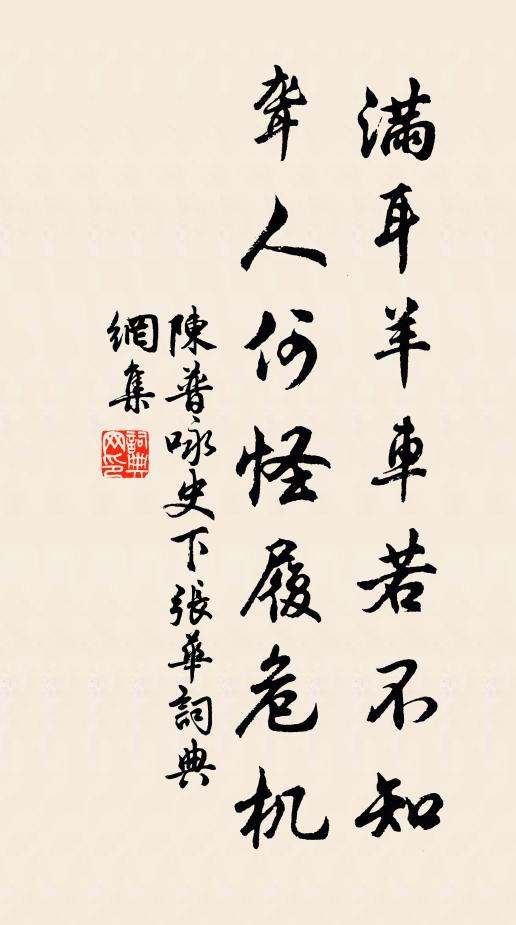 滿耳羊車若不知
聾人何怪履危机
陳普咏史下張華詞典
網集
詞典
网印